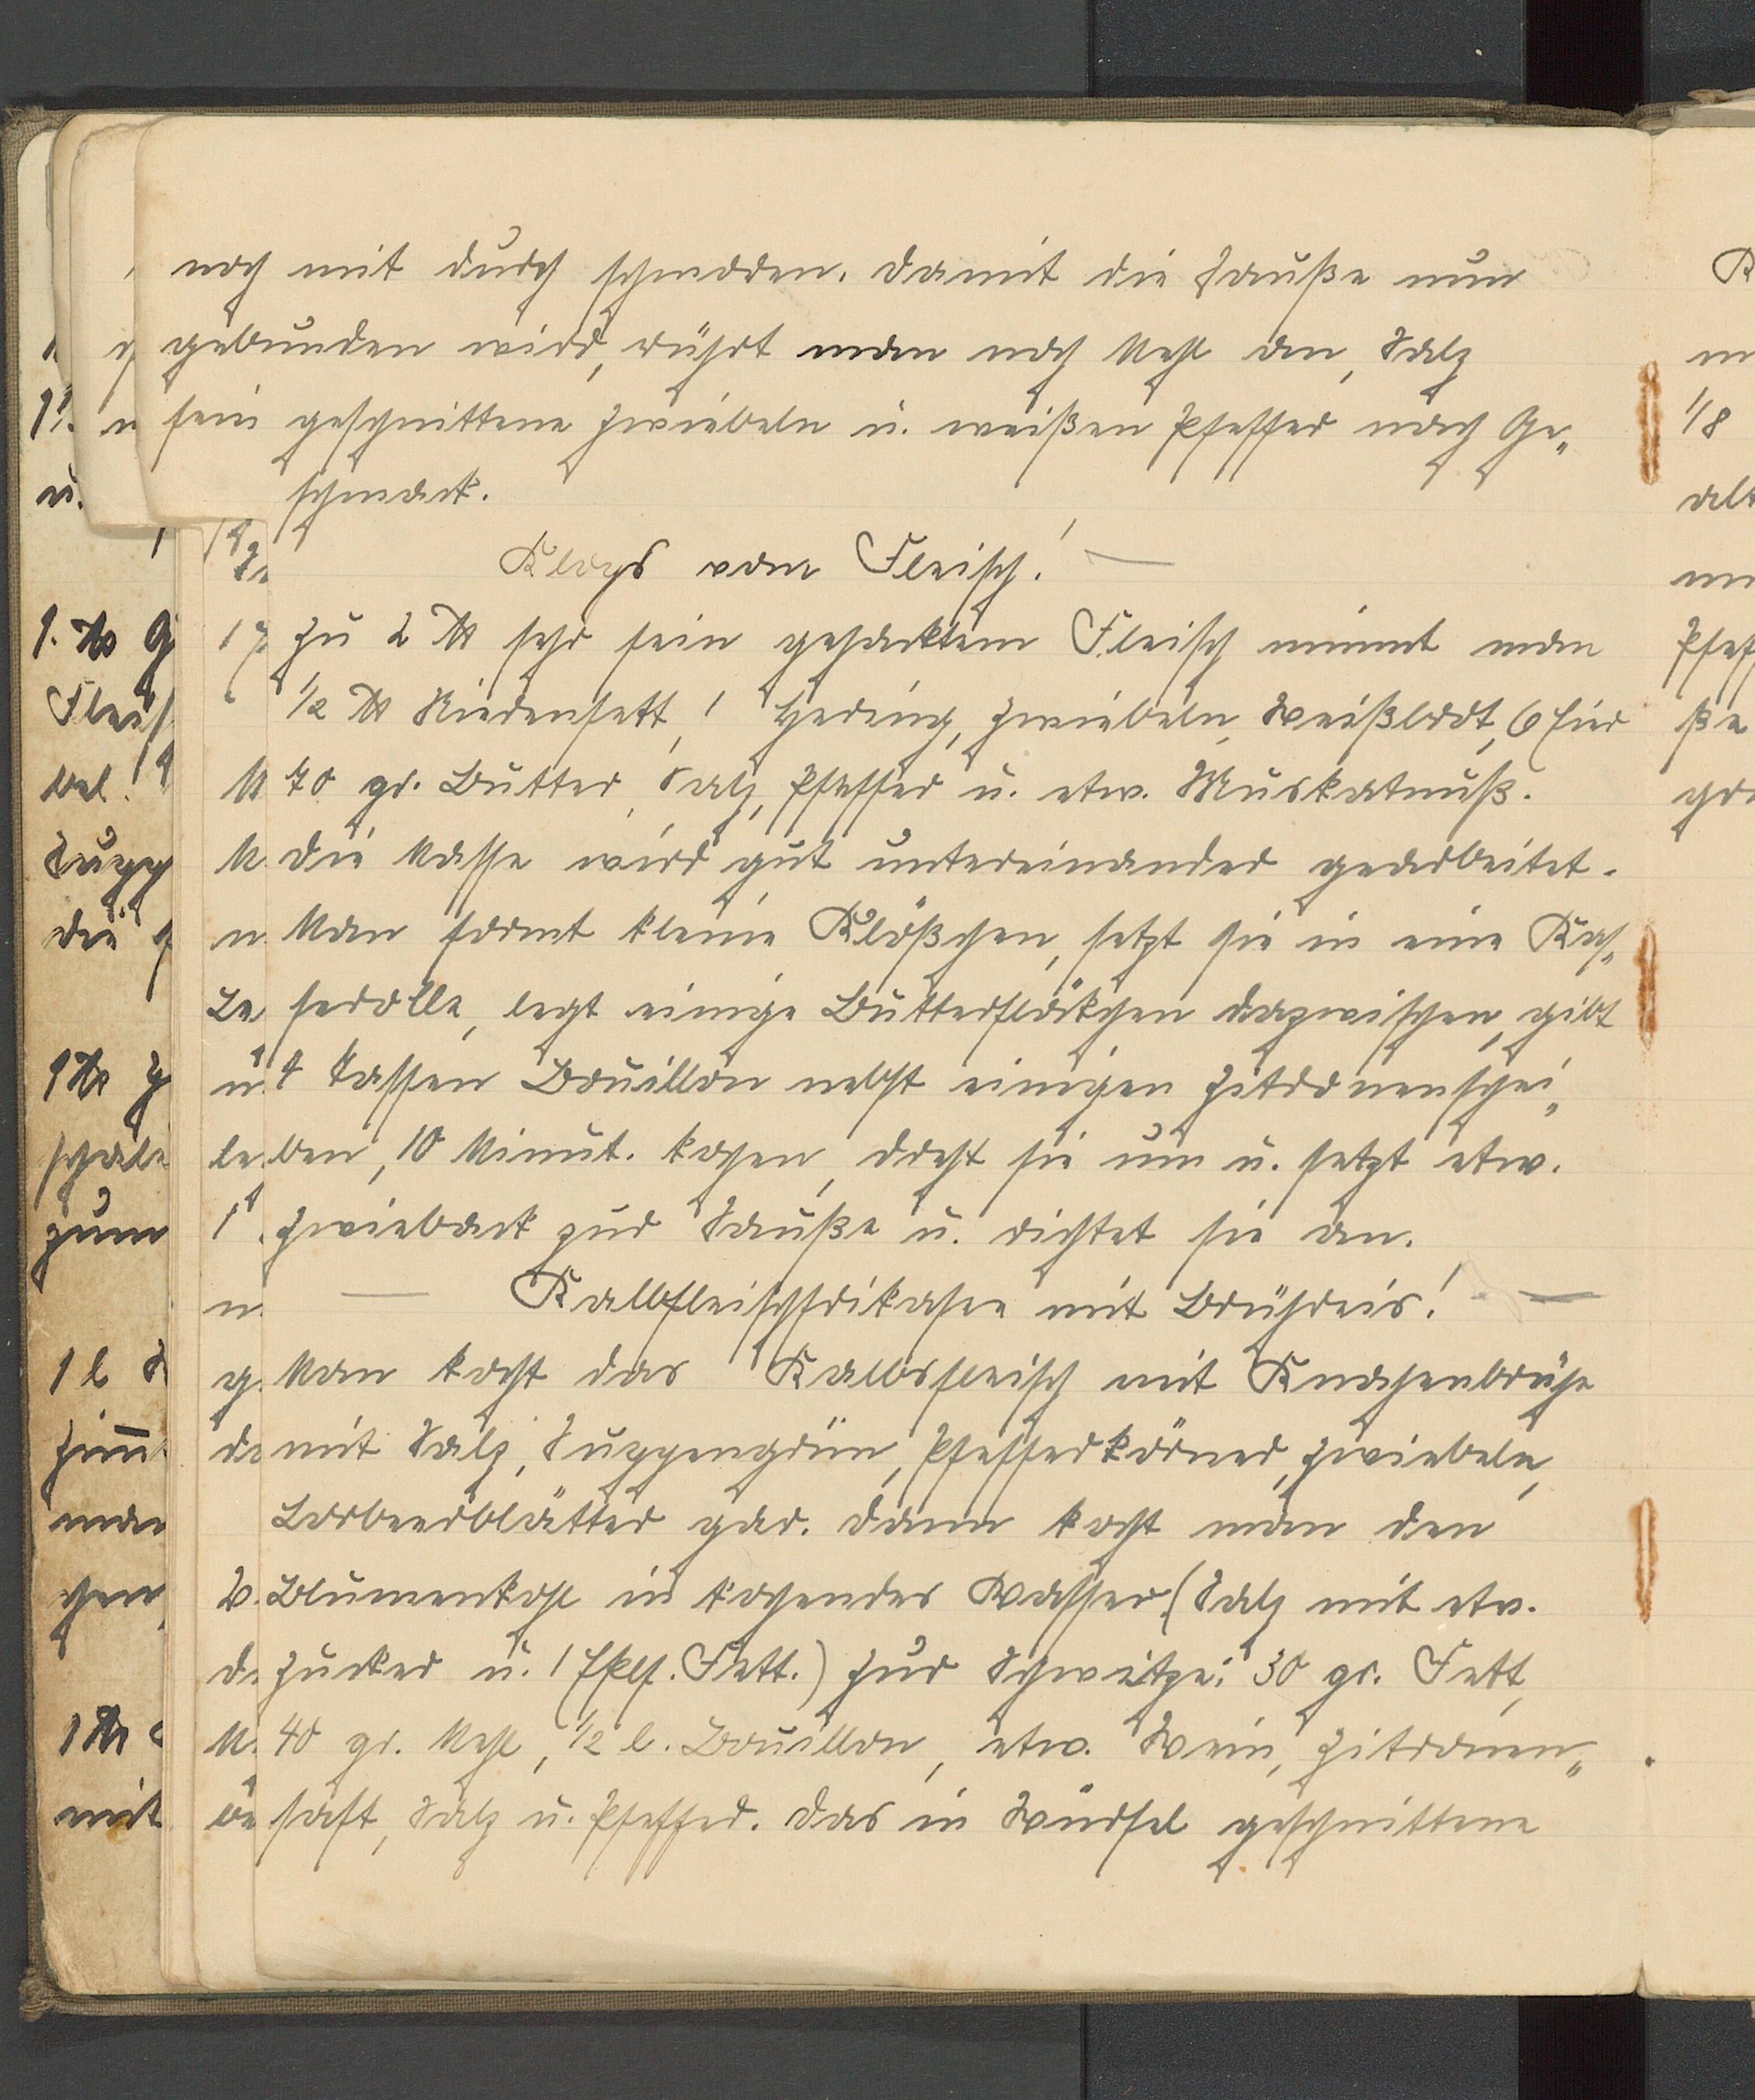 noch mit durch schmoren. Damit die Sauße nun
gebunden wird, rührt man noch Mehl an, Salz
fein geschnittene Zwiebeln u. weißen Pfeffer nach Ge„
schmack.
Klops vom Fleisch! —
Zu 2 ℔ sehr fein gehacktem Fleisch nimmt man
1/2 ℔ Nierenfett, 1 Hering, Zwiebeln, Weißbrot, 6 Eier
70 gr. Butter, Salz, Pfeffer u. etw. Muskatnuß.
Die Masse wird gut untereinander gearbeitet.
Man formt kleine Klößchen, setzt sie in eine Kas„
serolle, legt einige Butterflökchen dazwischen, gibt
4 Tassen Bouillon nebst einigen Zitronenschei„
ben, 10 Minut. kochen, dreht sie um u. setzt etw.
Zwieback zur Sauße u. richtet sie an.
— Kalbfleischfrikasee mit Brühreis! —
Man kocht das Kalbsfleisch mit Knochenbrühe
mit Salz, Suppengrün, Pfefferkörner, Zwiebeln,
Lorbeerblätter gar. Dann kocht man den
Blumenkohl in kochendes Wasser. (Salz mit etw.
Zucker u. 1 Eßlf. Fett.) Zur Schwitze: 30 gr. Fett,
40 gr. Mehl, 1/2 l. Bouillon, etw. Wein, Zitronen„
saft, Salz u. Pfeffer. Das in Würfel geschnittene